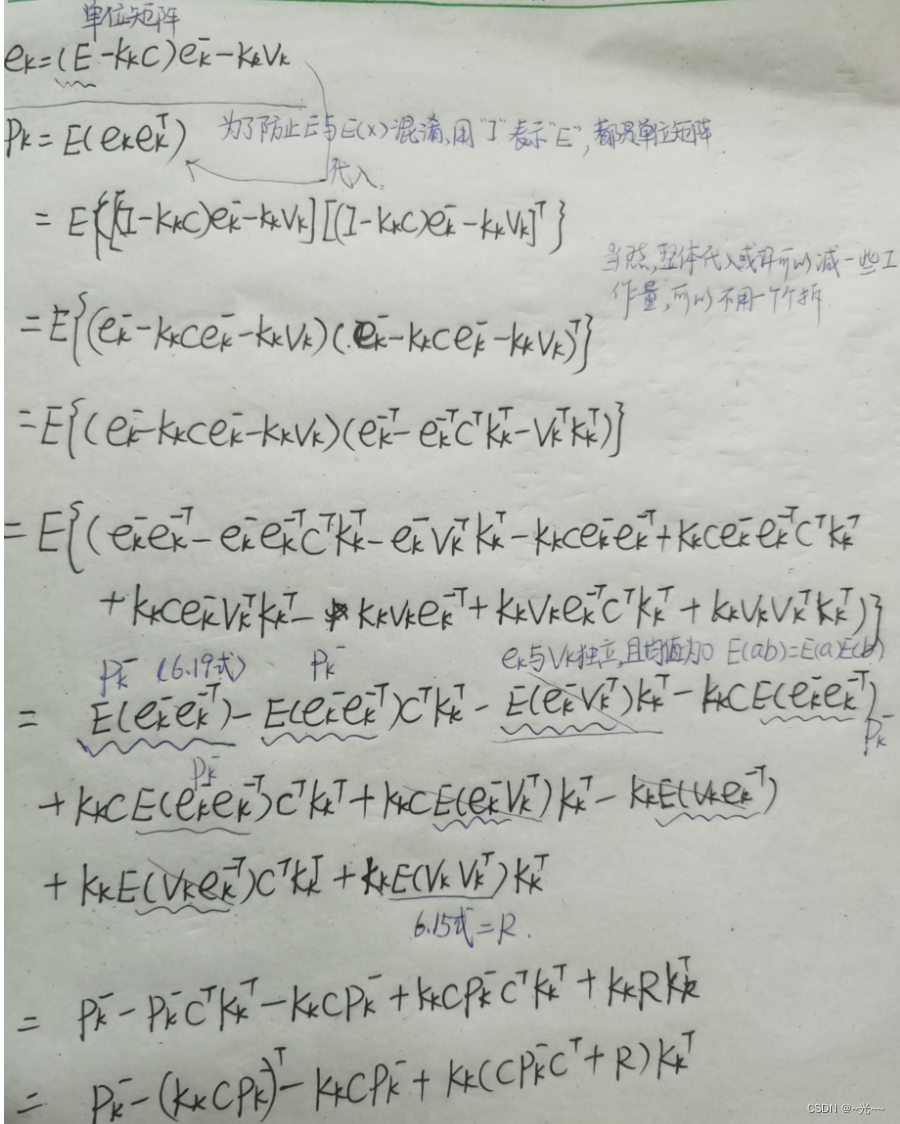 单位矩阵
eₖ=(E-KₖC)eₖ⁻-KₖVₖ
Pₖ=E(eₖeₖᵀ) 为了防止E与E(x)混淆,用"I"表示"E",都是单位矩阵
代入
=E{[(I-KₖC)eₖ⁻-KₖVₖ][(I-KₖC)eₖ⁻-KₖVₖ]ᵀ}
当然,整体代入或许可以减一些工
作量,可以不用一个个拆
=E{(eₖ⁻-KₖCeₖ⁻-KₖVₖ)(eₖ⁻-KₖCeₖ⁻-KₖVₖ)ᵀ}
=E{(eₖ⁻-KₖCeₖ⁻-KₖVₖ)(eₖ⁻ᵀ-eₖ⁻ᵀCᵀKₖᵀ-VₖᵀKₖᵀ)}
=E{(eₖ⁻eₖ⁻ᵀ-eₖ⁻eₖ⁻ᵀCᵀKₖᵀ-eₖ⁻VₖᵀKₖᵀ-KₖCeₖ⁻eₖ⁻ᵀ+KₖCeₖ⁻eₖ⁻ᵀCᵀKₖᵀ
+KₖCeₖ⁻VₖᵀKₖᵀ-KₖVₖeₖ⁻ᵀ+KₖVₖeₖ⁻ᵀCᵀKₖᵀ+KₖVₖVₖᵀKₖᵀ)}
Pₖ⁻ (6.19式) Pₖ⁻ eₖ与Vₖ独立,且均值为0 E(ab)=E(a)E(b)
=E(eₖ⁻eₖ⁻ᵀ)-E(eₖ⁻eₖ⁻ᵀ)CᵀKₖᵀ-E(eₖ⁻Vₖᵀ)Kₖᵀ-KₖCE(eₖ⁻eₖ⁻ᵀ)
Pₖ⁻
Pₖ⁻
+KₖCE(eₖ⁻eₖ⁻ᵀ)CᵀKₖᵀ+KₖCE(eₖ⁻Vₖᵀ)Kₖᵀ-KₖE(Vₖeₖ⁻ᵀ)
+KₖE(Vₖeₖ⁻ᵀ)CᵀKₖᵀ+KₖE(VₖVₖᵀ)Kₖᵀ
6.15式=R.
=Pₖ⁻-Pₖ⁻CᵀKₖᵀ-KₖCPₖ⁻+KₖCPₖ⁻CᵀKₖᵀ+KₖRKₖᵀ
=Pₖ⁻-(KₖCPₖ⁻)ᵀ-KₖCPₖ⁻+Kₖ(CPₖ⁻Cᵀ+R)Kₖᵀ
CSDN @~光~~